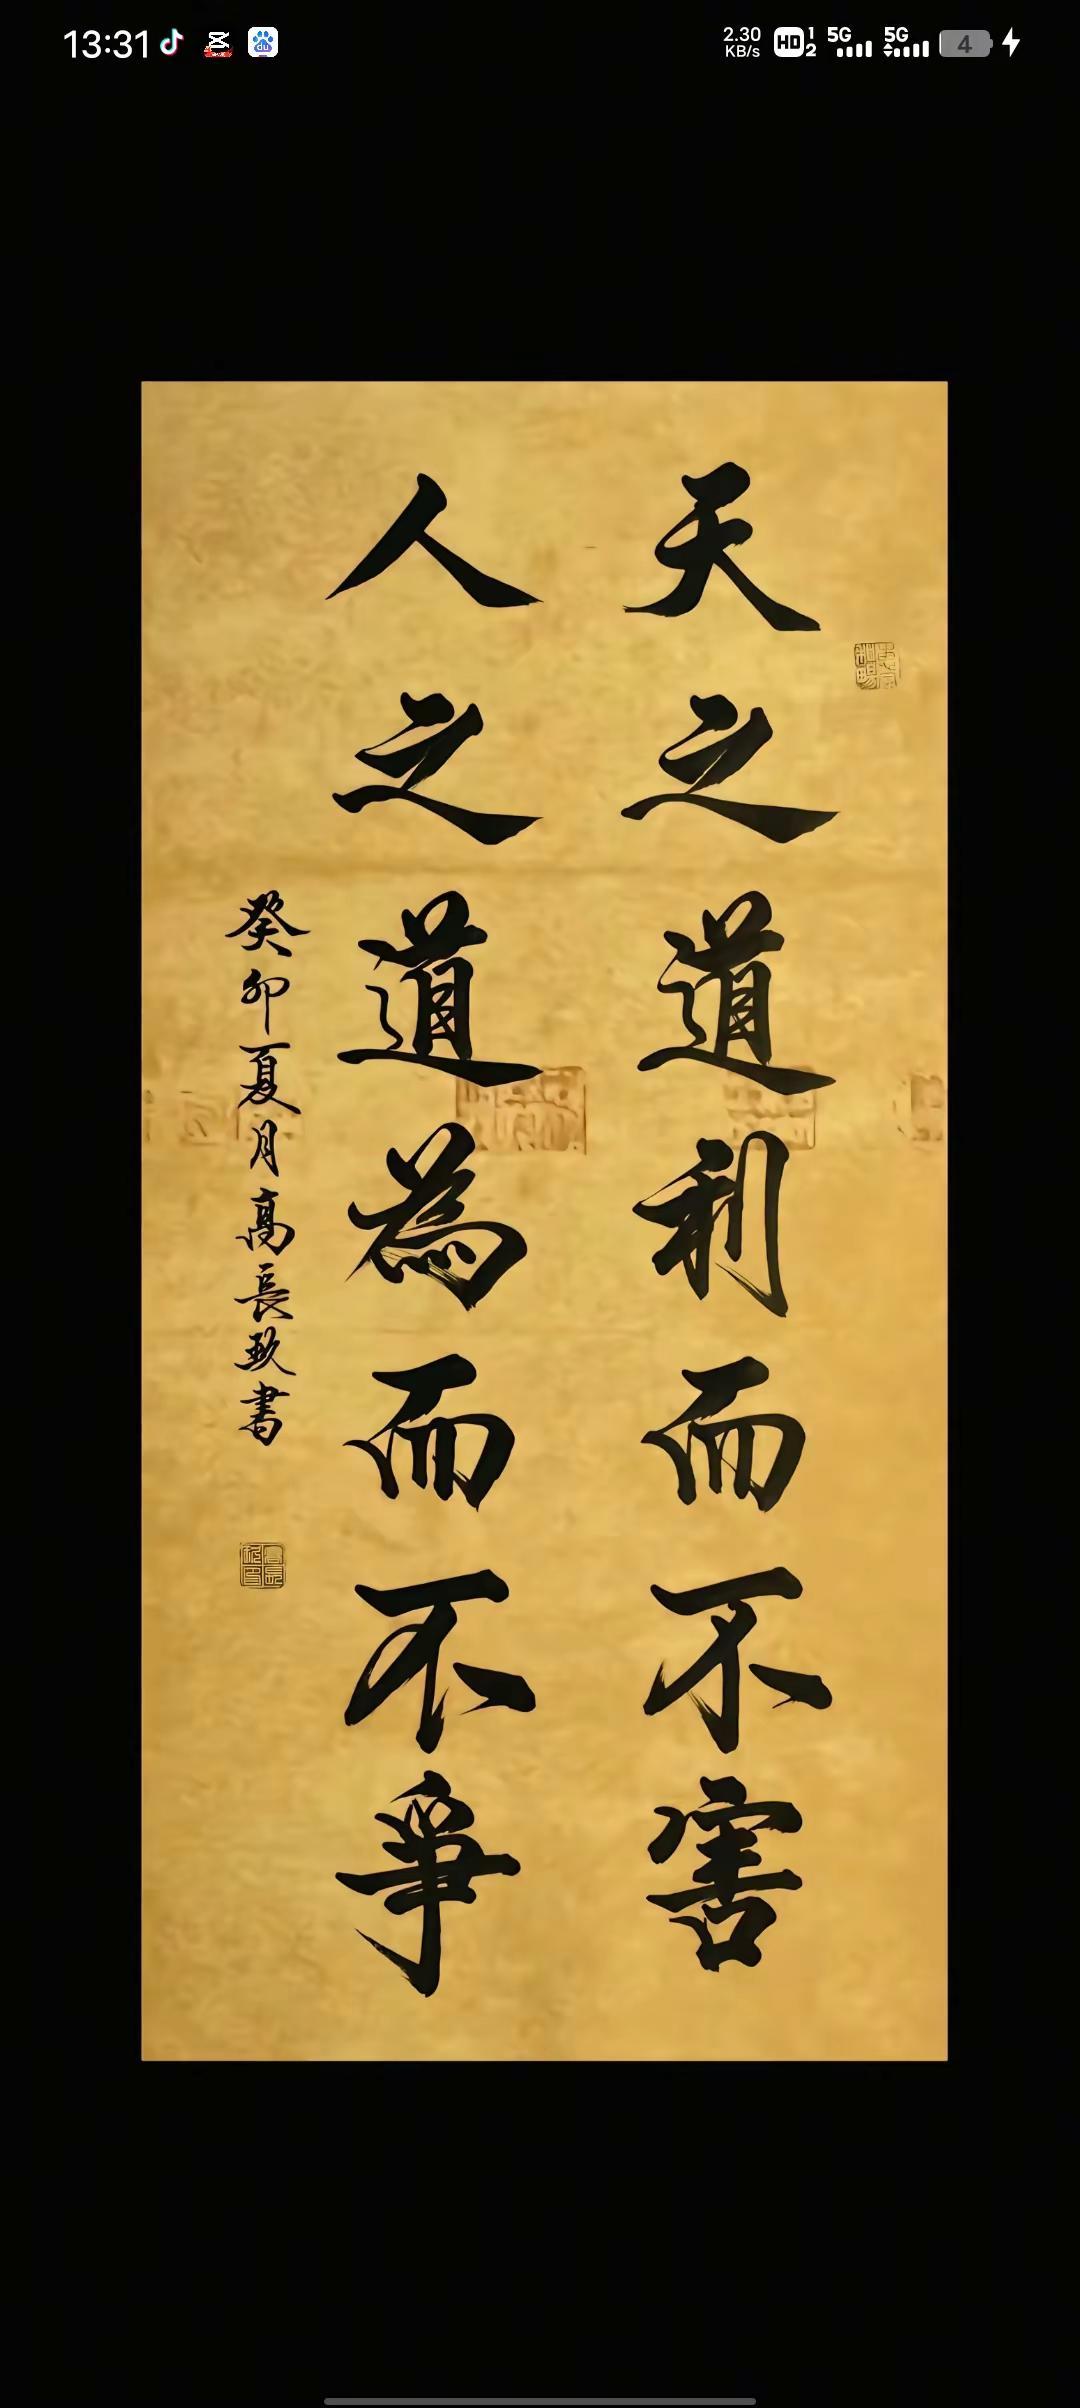 13:31
2.30 KB/s HD 1 2 5G 5G 4
du
天之道利而不害
人之道為而不爭
癸卯夏月高長玖書